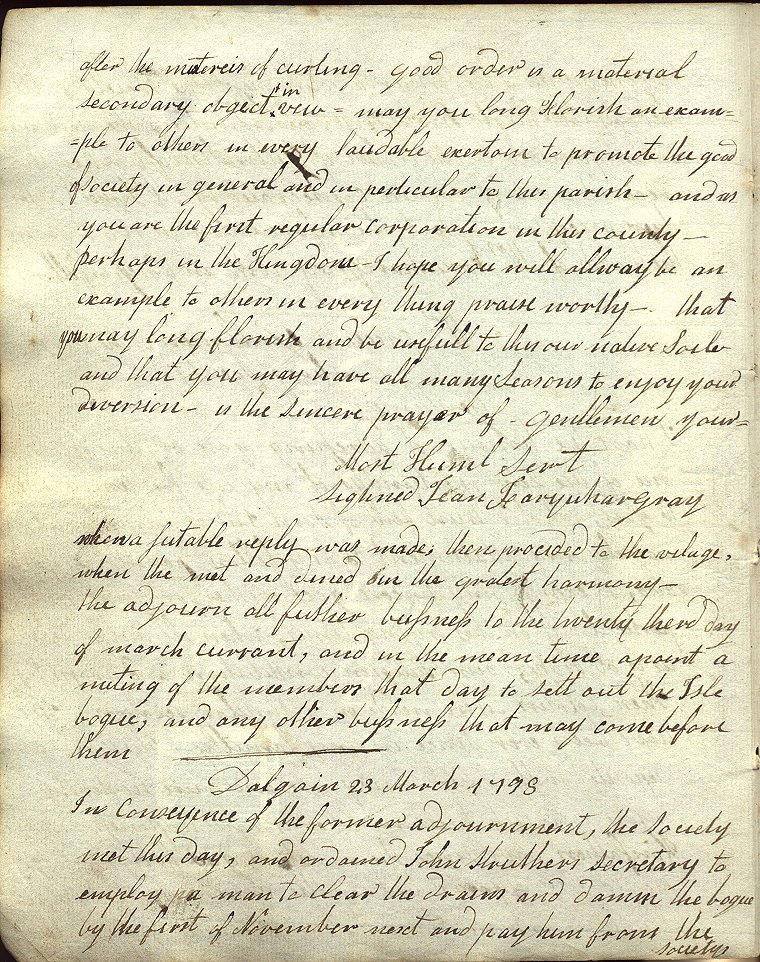 after the mistereis of curling - good order is a material
secondary object in vew = may you long Florish an exam=
=ple to others in every laudable exertom to promote the good
of society in general and in perticular to this parish - and as
you are the first regular corporation in this county -
perhaps in the Kingdom - I hope you will allway be an
example to others in every thing praise worthy - that
you may long florish and be usefull to this our native Soile
and that you may have all many Seasons to enjoy your
diversion - is the Sincere prayer of - Gentlemen your=
Most Huml Servt
Sighned Jean Farquhar Gray
when a sutable reply was made, then proceded to the vilage,
when the met and dined in the gratest harmony -
the adjourn all futher bussness to the twenty therd day
of march currant, and in the mean time apoint a
miting of the members that day to sett out the Isle
bogue, and any other bussness that may come before
them
Dalgain 23 March 1798
In Conseqence of the former adjournment, the Society
met this day, and ordained John Struthers Secretary to
employ a man to clear the drains and damm the bogue
by the first of November next and pay him from the
societys